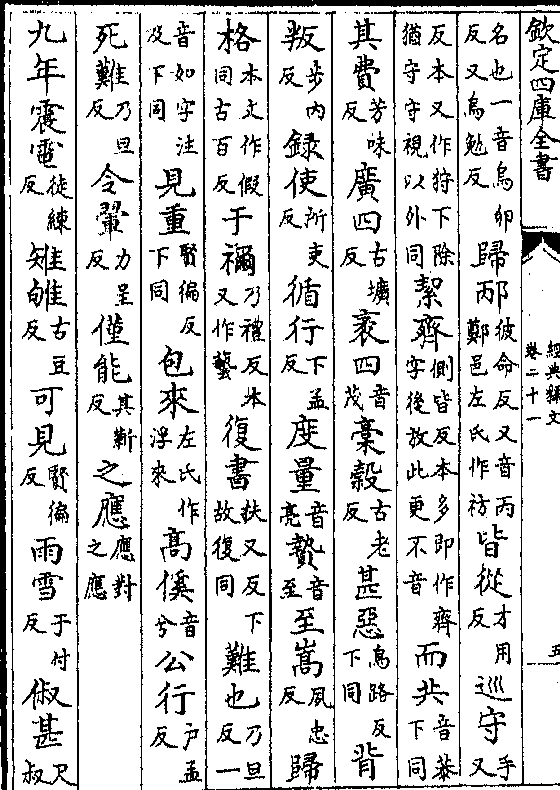 欽定四庫全書
經典釋文
卷二十一
五
名也一音烏卯反又烏勉反歸邴彼命反又音丙鄭邑左氏作祊皆從才用反巡守手又
反本又作狩下除猶守守視以外同絜齊側皆反本多即作齊字後放此更不音而共音恭下同
其費芳味反廣四古壙反袤四音茂稾穀古老反甚惡烏路反下同背
叛步内反録使所吏反循行下孟反度量音亮贄音至至嵩夙忠反歸
格本文作假同古百反于禰乃禮反本又作藝復書扶又反下故復同難也乃旦反一
音如字注及下同見重賢徧反下同包來左氏作浮來高傒音兮公行户孟反
死難乃旦反令翬力呈反僅能其靳反之應應對之應
九年震電徒練反雉雊古豆反可見賢徧反雨雪于付反俶甚尺叔